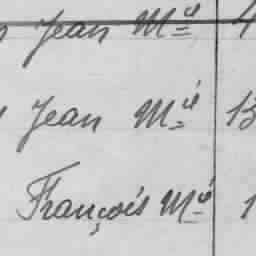 Jean Mie 4
Jean Mie 13
François Mie 1